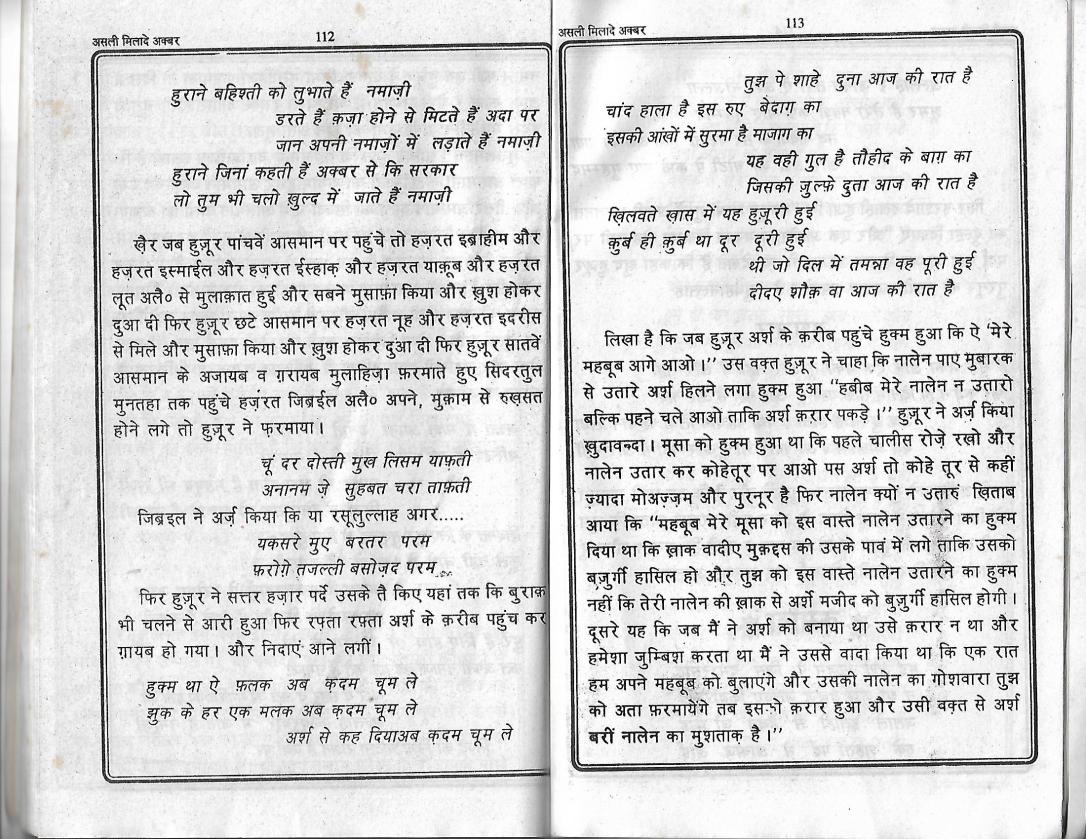 असली मिलादे अक्बर 112
हुराने बहिश्ती को लुभाते हैं नमाज़ी
डरते हैं क़ज़ा होने से मिटते हैं अदा पर
जान अपनी नमाज़ों में लड़ाते हैं नमाज़ी
हुराने जिनां कहती हैं अक्बर से कि सरकार
लो तुम भी चलो ख़ुल्द में जाते हैं नमाज़ी
ख़ैर जब हुज़ूर पांचवें आसमान पर पहुंचे तो हज़रत इब्राहीम और
हज़रत इस्माईल और हज़रत ईस्हाक़ और हज़रत याक़ूब और हज़रत
लूत अलै० से मुलाक़ात हुई और सबने मुसाफ़ा किया और ख़ुश होकर
दुआ दी फिर हुज़ूर छटे आसमान पर हज़रत नूह और हज़रत इदरीस
से मिले और मुसाफ़ा किया और ख़ुश होकर दुआ दी फिर हुज़ूर सातवें
आसमान के अजायब व ग़रायब मुलाहिज़ा फ़रमाते हुए सिदरतुल
मुनतहा तक पहुंचे हज़ंरत जिब्रईल अलै० अपने, मुक़ाम से रुख़सत
होने लगे तो हुज़ूर ने फ़रमाया।
चूं दर दोस्ती मुख लिसम याफ़ती
अनानम ज़े सुहबत चरा ताफ़ती
जिबइल ने अर्ज़ किया कि या रसूलुल्लाह अगर.....
यकसरे मुए बरतर परम
फ़रोग़े तजल्ली बसोज़द परम
फिर हुज़ूर ने सत्तर हज़ार पर्दे उसके तै किए यहां तक कि बुराक़
भी चलने से आरी हुआ फिर रफ़्ता रफ़्ता अर्श के क़रीब पहुंच कर
ग़ायब हो गया। और निदाएं आने लगीं।
हुक्म था ऐ फ़लक अब क़दम चूम ले
झुक के हर एक मलक अब क़दम चूम ले
अर्श से कह दियाअब क़दम चूम ले
असली मिलादे अक्बर 113
तुझ पे शाहे दुना आज की रात है
चांद हाला है इस रुए बेदाग़ का
इसकी आंखों में सुरमा है माजाग का
यह वही गुल है तौहीद के बाग़ का
जिसकी ज़ुल्फ़े दुता आज की रात है
ख़िलवते ख़ास में यह हुज़ूरी हुई
क़ुर्ब ही क़ुर्ब था दूर दूरी हुई
थी जो दिल में तमन्ना वह पूरी हुई
दीदए शौक़ वा आज की रात है
लिखा है कि जब हुज़ूर अर्श के क़रीब पहुंचे हुक्म हुआ कि ऐ ‘मेरे
महबूब आगे आओ।’’ उस वक़्त हुज़ूर ने चाहा कि नालेन पाए मुबारक
से उतारे अर्श हिलने लगा हुक्म हुआ “हबीब मेरे नालेन न उतारो
बल्कि पहने चले आओ ताकि अर्श क़रार पकड़े।’’ हुज़ूर ने अर्ज़ किया
ख़ुदावन्दा। मूसा को हुक्म हुआ था कि पहले चालीस रोज़े रखो और
नालेन उतार कर कोहेतूर पर आओ पस अर्श तो कोहे तूर से कहीं
ज़्यादा मोअज़्ज़म और पुरनूर है फिर नालेन क्यों न उतारुं ख़िताब
आया कि “महबूब मेरे मूसा को इस वास्ते नालेन उतारने का हुक्म
दिया था कि ख़ाक वादीए मुक़द्दस की उसके पावं में लगे ताकि उसको
बज़ुर्गी हासिल हो और तुझ को इस वास्ते नालेन उतारने का हुक्म
नहीं कि तेरी नालेन की ख़ाक से अर्शे मजीद को बुज़ुर्गी हासिल होगी।
दूसरे यह कि जब मैं ने अर्श को बनाया था उसे क़रार न था और
हमेशा जुम्बिश करता था मैं ने उससे वादा किया था कि एक रात
हम अपने महबूब को बुलाएंगे और उसकी नालेन का गोशवारा तुझ
को अता फ़रमायेंगे तब इसको क़रार हुआ और उसी वक़्त से अर्श
बरीं नालेन का मुशताक़ है।’’